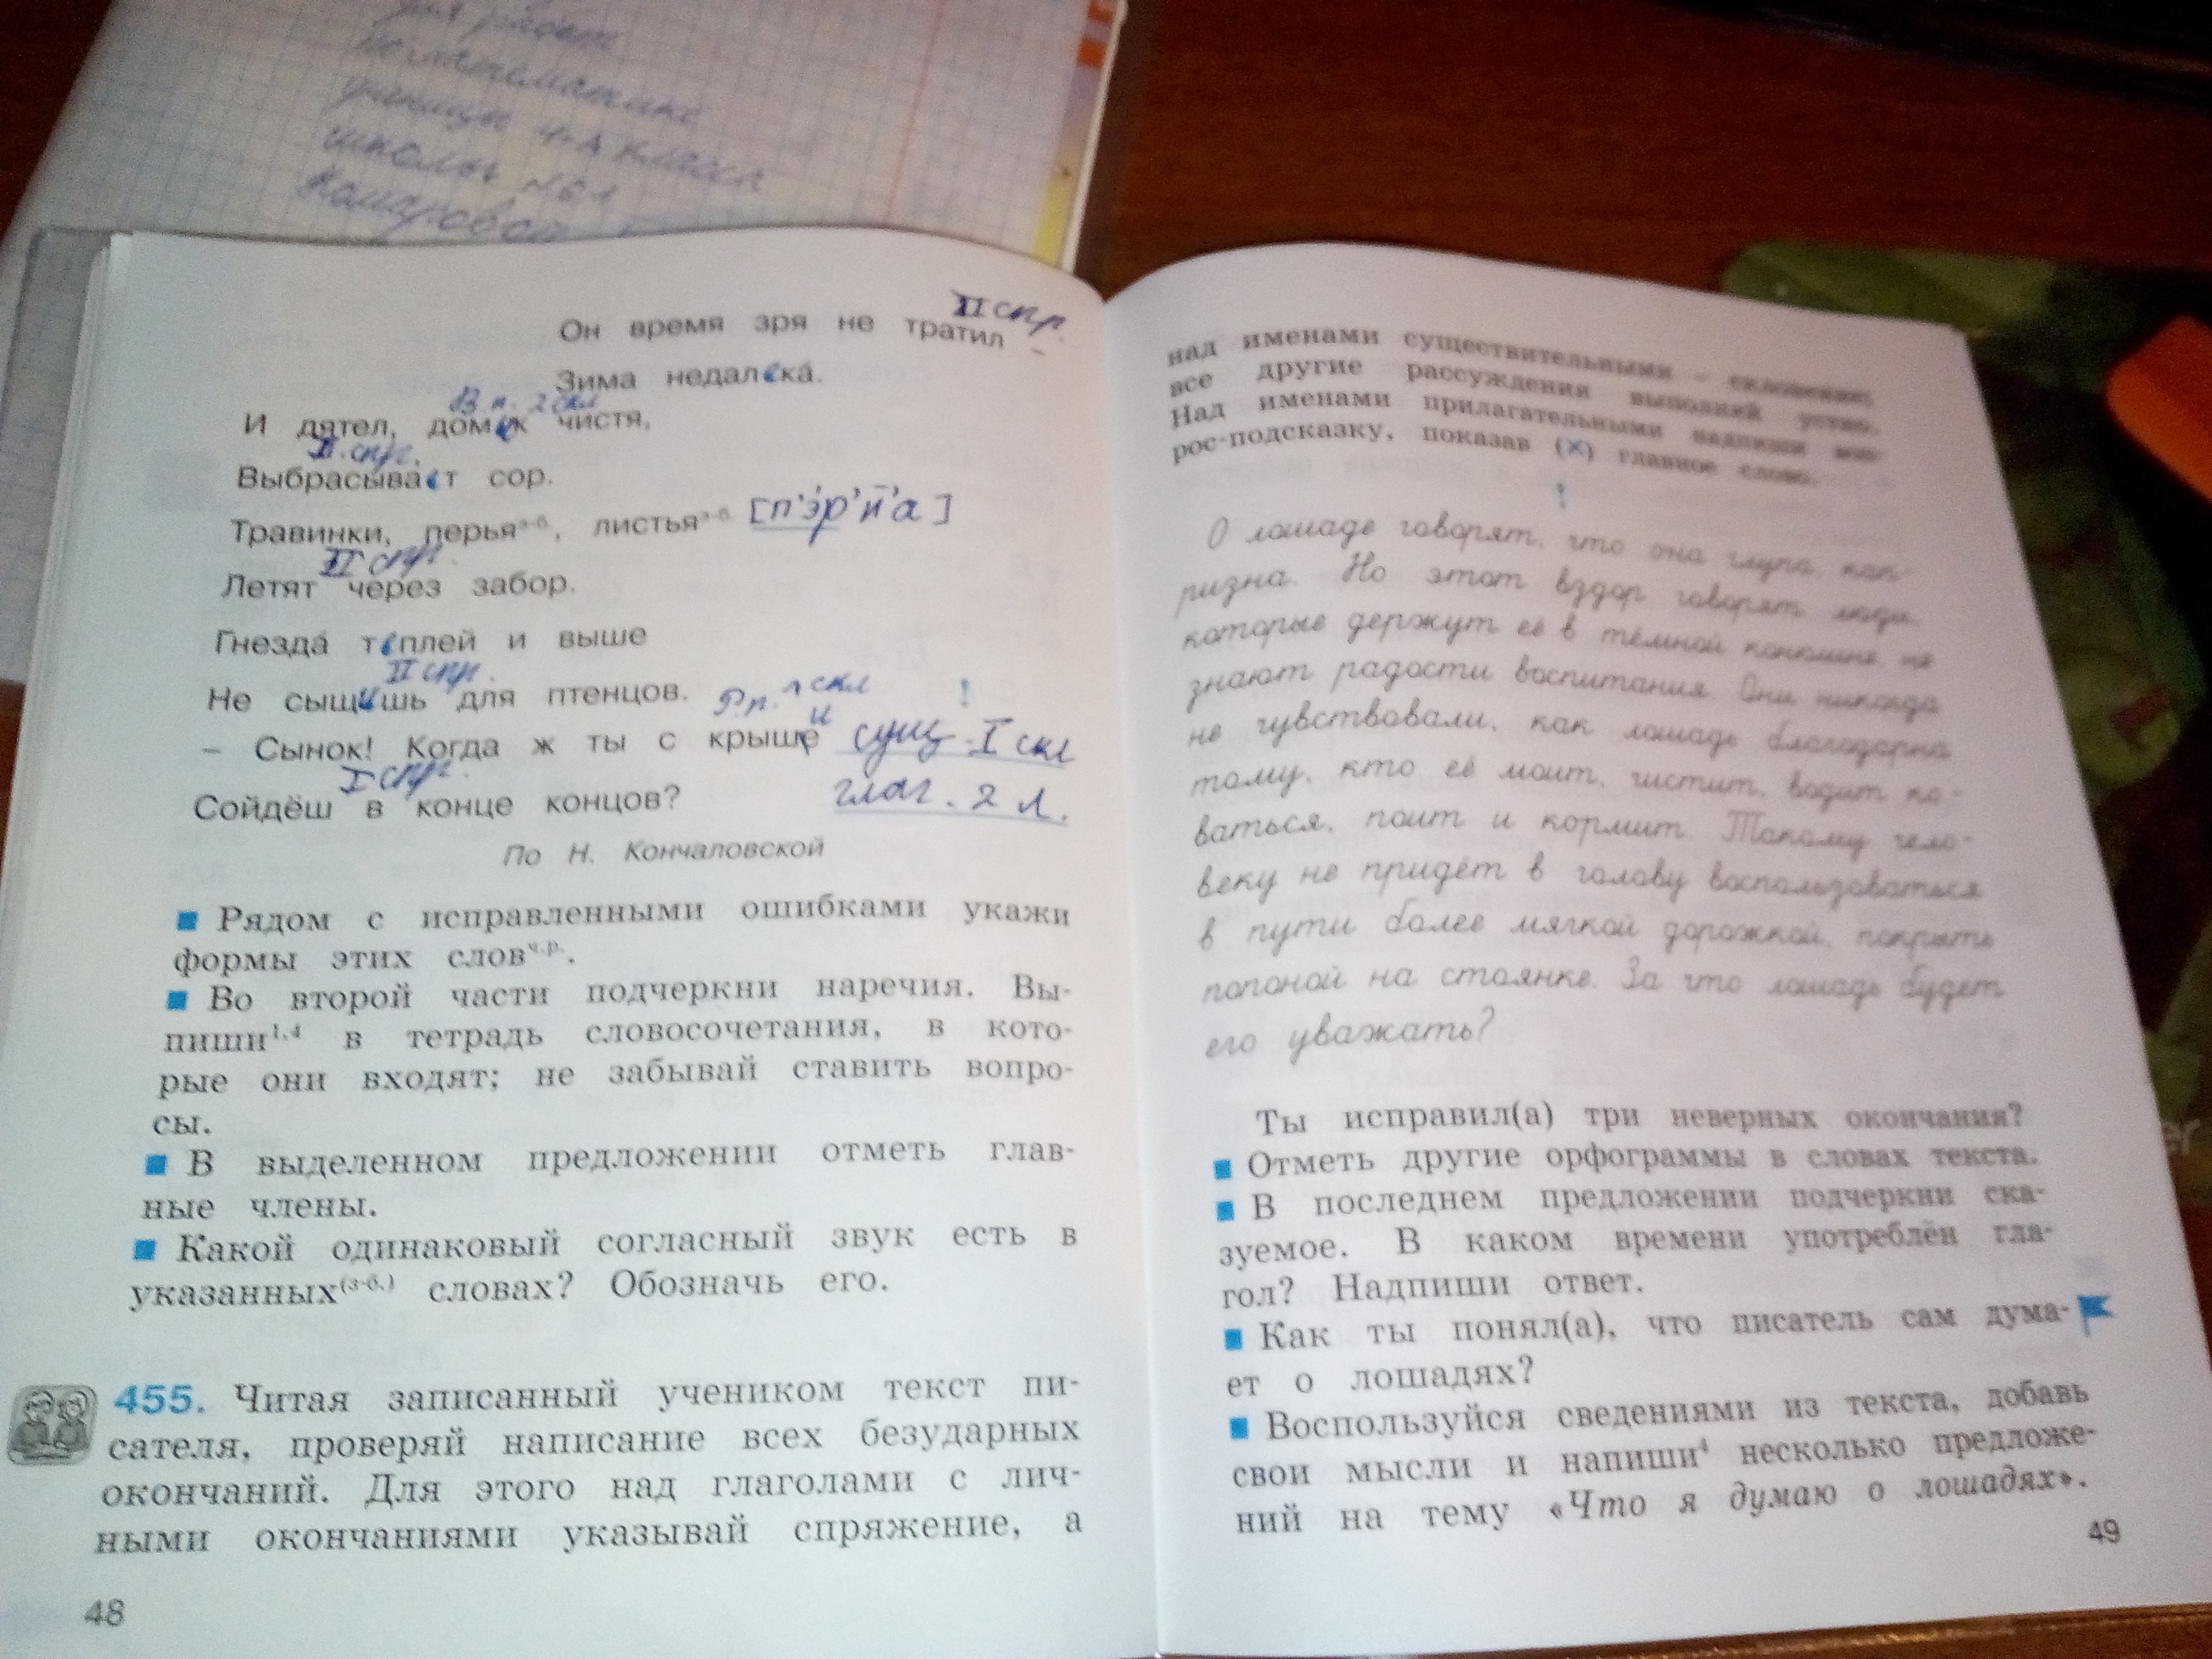 для работ
по математике
ученицы 4-А класса
школы №61
Комаровой
II спр.
Он время зря не тратил –
Зима недалека́.
В.п. 2 скл
И дятел, домик чистя,
II. спр.
Выбрасывает сор.
Травинки, перья з-б., листья з-б. [п'э́р'й'а]
II спр.
Летят через забор.
Гнезда́ теплей и выше
II спр.
Не сыщишь для птенцов. Р.п. 1 скл !
и
– Сынок! Когда ж ты с крыше сущ - I скл
I спр.
Сойдёш в конце концов? глаг. 2 л.
По Н. Кончаловской
Рядом с исправленными ошибками укажи
формы этих слов ч.р.
Во второй части подчеркни наречия. Вы-
пиши1,4 в тетрадь словосочетания, в кото-
рые они входят; не забывай ставить вопро-
сы.
В выделенном предложении отметь глав-
ные члены.
Какой одинаковый согласный звук есть в
указанных(з-б.) словах? Обозначь его.
455. Читая записанный учеником текст пи-
сателя, проверяй написание всех безударных
окончаний. Для этого над глаголами с лич-
ными окончаниями указывай спряжение, а
48
над именами существительными – склонение;
все другие рассуждения выполняй устно.
Над именами прилагательными надпиши воп-
рос-подсказку, показав (×) главное слово.
!
О лошаде говорят, что она глупа, кап-
ризна. Но этот вздор говорят люди,
которые держут её в тёмной конюшне, не
знают радости воспитания. Они никогда
не чувствовали, как лошадь благодарна
тому, кто её моит, чистит, водит ко-
ваться, поит и кормит. Такому чело-
веку не придёт в голову воспользоваться
в пути более мягкой дорожкой, покрыть
попоной на стоянке. За что лошадь будет
его уважать?
Ты исправил(а) три неверных окончания?
Отметь другие орфограммы в словах текста.
В последнем предложении подчеркни ска-
зуемое. В каком времени употреблён гла-
гол? Надпиши ответ.
Как ты понял(а), что писатель сам дума-
ет о лошадях?
Воспользуйся сведениями из текста, добавь
свои мысли и напиши4 несколько предложе-
ний на тему «Что я думаю о лошадях».
49